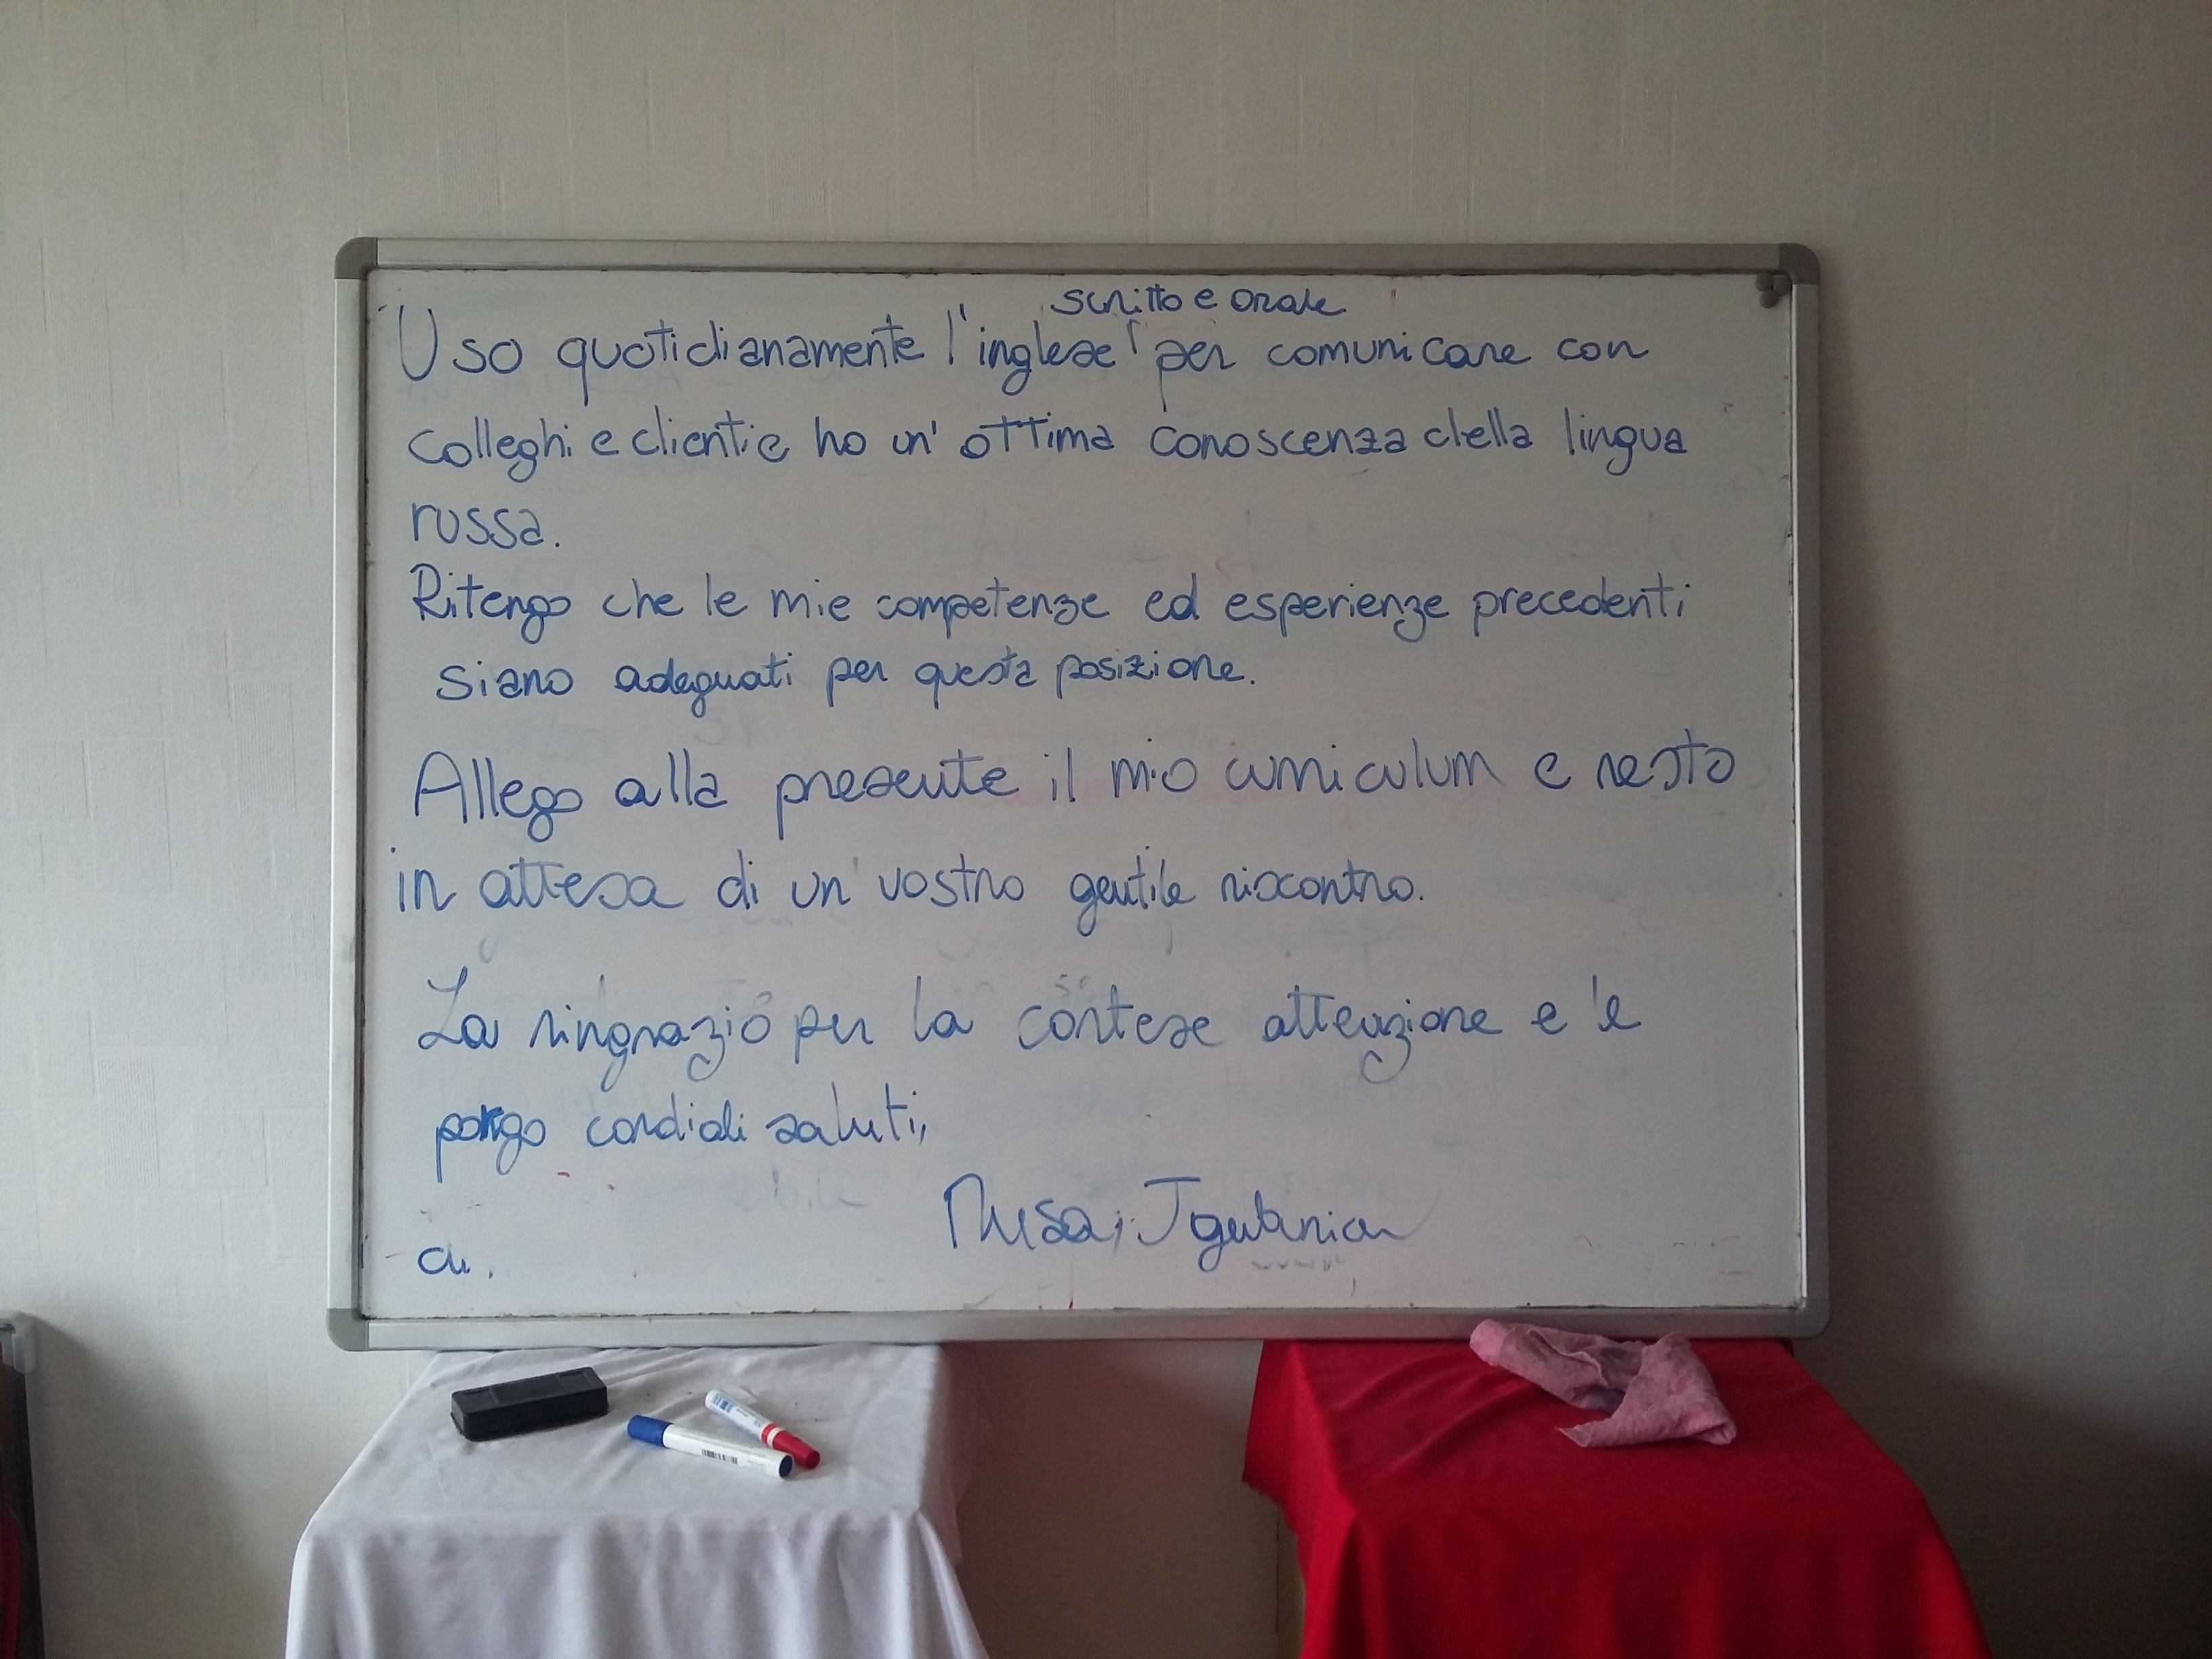 scritto e orale
Uso quotidianamente l'inglese per comunicare con
colleghi e clienti e ho un' ottima conoscenza della lingua
russa.
Ritengo che le mie competenze ed esperienze precedenti
siano adeguati per questa posizione.
Allego alla presente il mio curriculum e resto
in attesa di un' vostro gentile riscontro.
La ringrazio per la cortese attenzione e le
porgo cordiali saluti,